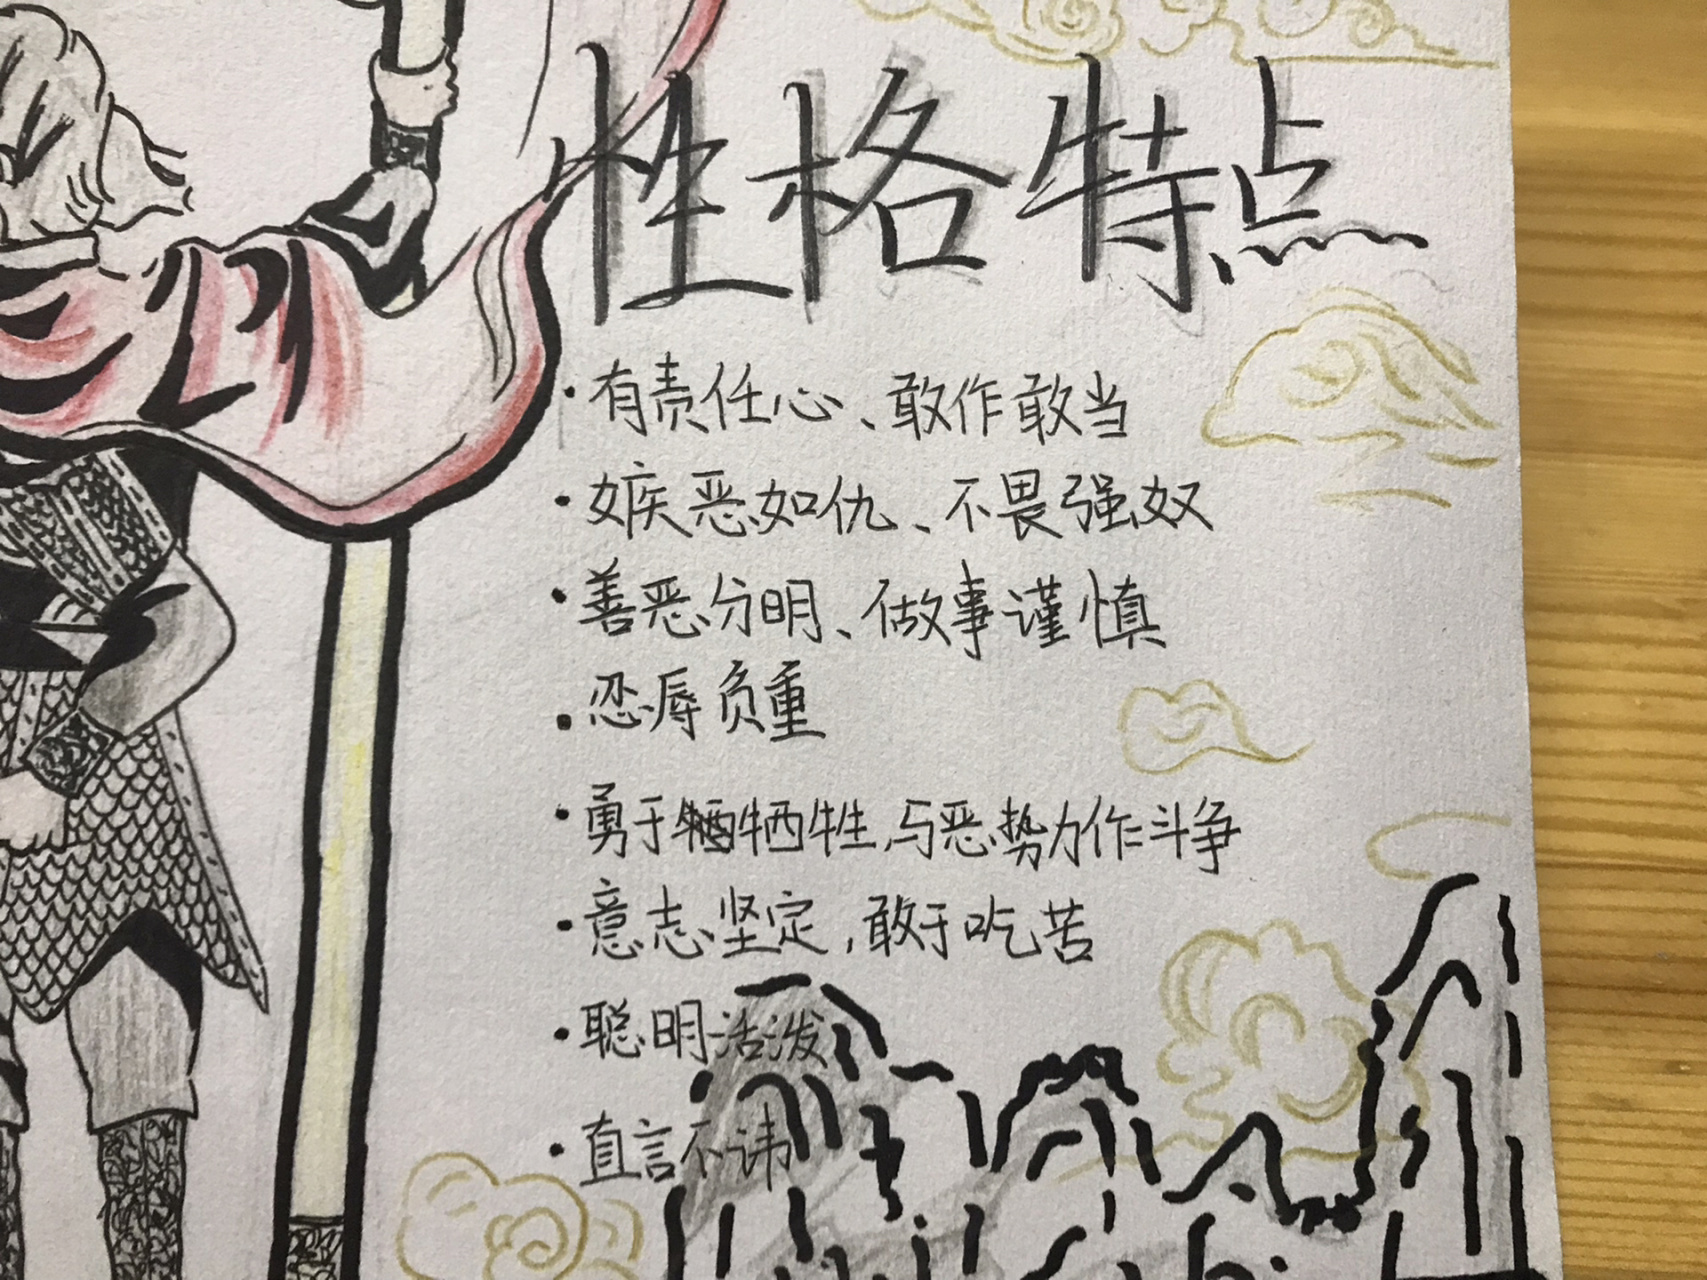 性格特点
·有责任心、敢作敢当
·嫉恶如仇、不畏强奴
·善恶分明、做事谨慎
·忍辱负重
·勇于牺牲,与恶势力作斗争
·意志坚定,敢于吃苦
·聪明活泼
·直言不讳